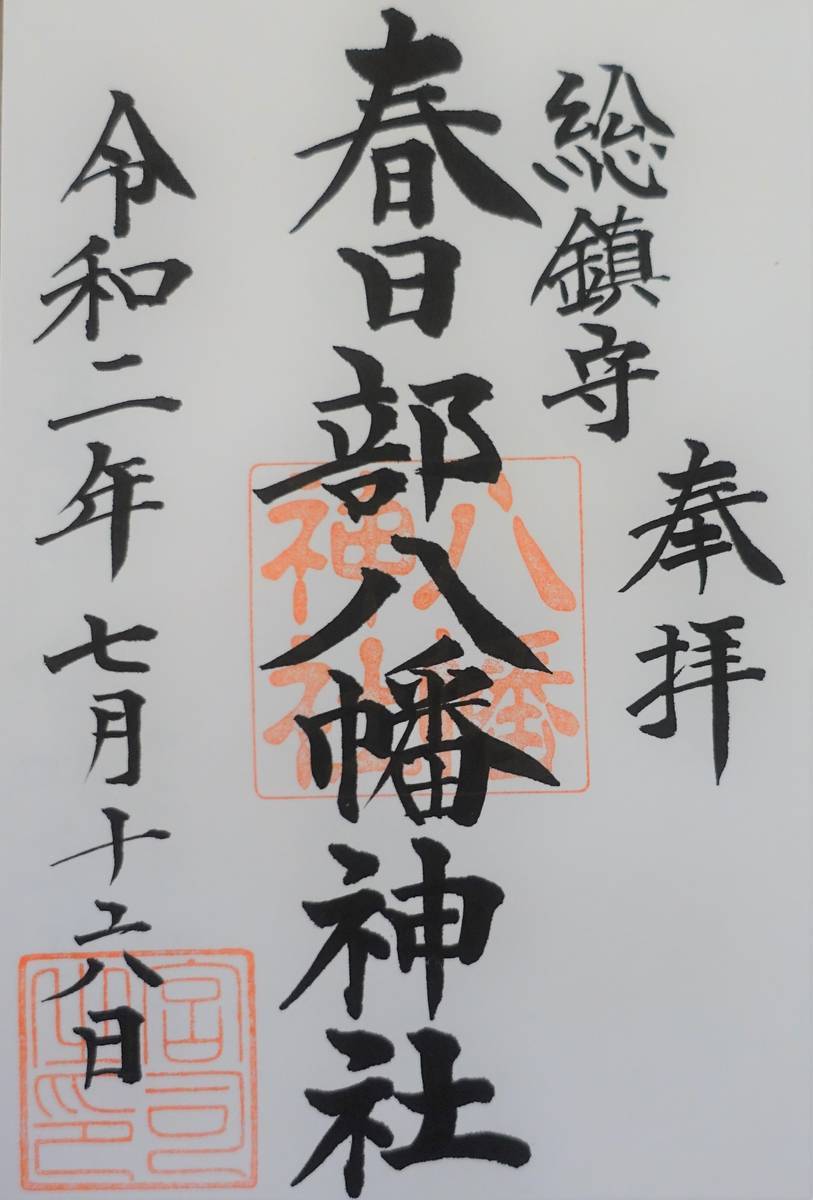 奉拝
総鎮守
春日部八幡神社
八幡
神社
令和二年七月十六日
宮司
之印